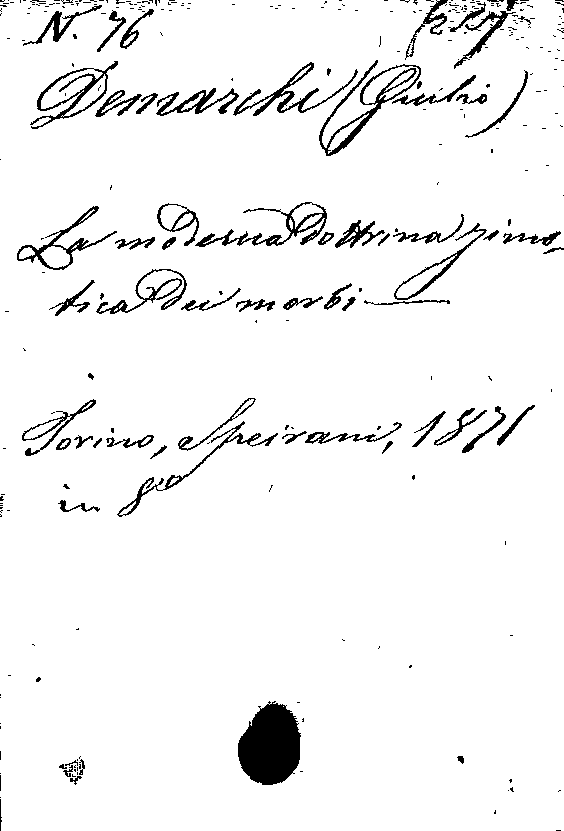 N. 76
Demarchi (Giulio)
La moderna dottrina zimo-
tica dei morbi
Torino, Speirani, 1871
in 8vo